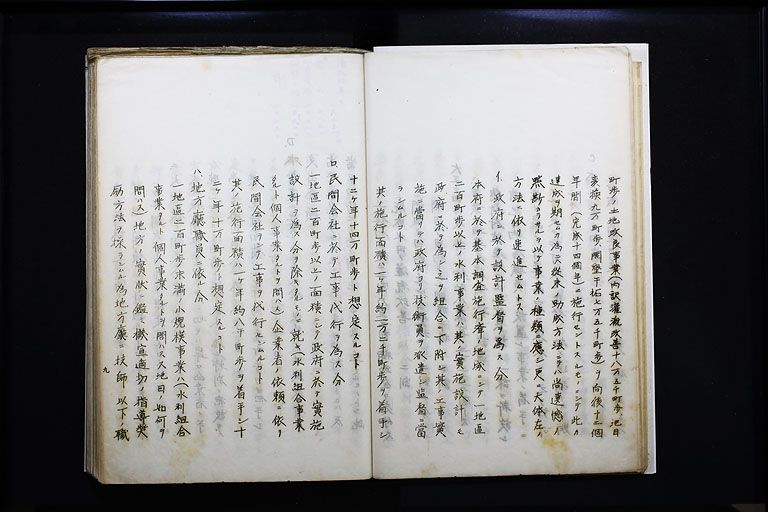 町歩ノ土地改良事業(内訳灌漑改善十八万五千町歩地目
変換九万町歩開墾干拓七万五千町歩)ヲ向後十二個
年間(完成十四個年)ニ施行セントスルモノニシテ此ノ
達成ヲ期センカ為ニハ従来ノ助成方法ニテハ尚遺憾ノ
点尠カラサルヲ以テ事業ノ種類ニ應シ更ニ大体左ノ
方法ニ依リ速進セムトス
イ、政府ニ於テ設計監督ヲ為ス分
本府ニ於テ基本調査施行済ノ地域ニシテ一地區
二百町歩以上ノ水利事業ハ其ノ實施設計ヲモ
政府ニ於テ為シ之ヲ組合ニ下附シ其ノ工事實
施ニ當リテハ政府ヨリ技術員ヲ派遣シ監督ニ當
ラシムルコト
其ノ施行面積ハ一ケ年約一万二千町歩ヲ着手シ
十二ケ年十四万町歩ト想定スルコト
ロ、民間会社ニ於テ工事代行ヲ為ス分
一地區二百町歩以上ノ面積ニシテ政府ニ於テ實施
設計ヲ為ス分ヲ除キタルモノニ就キ(水利組合事業
タルト個人事業タルトヲ問ハス)企業者ノ依頼ニ依リ
民間会社ヲシテ工事ヲ代行セシムルコト
其ノ施行面積ハ一ケ年約八千町歩ヲ着手シ十
二ケ年十万町歩ト想定スルコト
ハ、地方廳職員ニ依ル分
一地區二百町歩未満ノ小規模事業ハ(水利組合
事業タルト個人事業タルトヲ問ハス又地目ノ如何ヲ
問ハス)地方ノ實状ニ鑑ミ機宜適切ノ指導奨
励方法ヲ採ラシムル為地方廳ニ技師以下ノ職
九